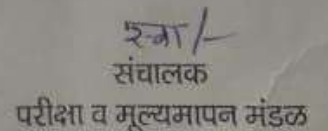 स्वा/-
संचालक
परीक्षा व मूल्यमापन मंडळ